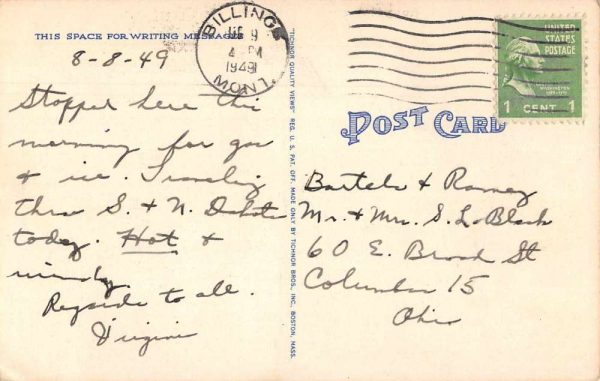 THIS SPACE FOR WRITING MESSAGES
8-8-49
Stopped here this
morning for gas
& ice. Traveling
thru S. & N. Dakota
today. Hot &
windy.
Regards to all.
Virginia
BILLINGS
9
4 PM
1949
MONT.
TICHNOR QUALITY VIEWS, REG. U. S. PAT. OFF. MADE ONLY BY TICHNOR BROS., INC., BOSTON, MASS.
UNITED
STATES
POSTAGE
WASHINGTON
1 CENT 1
POST CARD
Bartels & Ramey
Mr. & Mrs. S. L. Black
60 E. Broad St
Columbus 15
Ohio